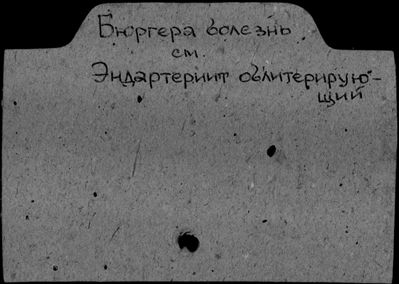 Бюргера болезнь
см.
Эндартериит облитерирую-
щий